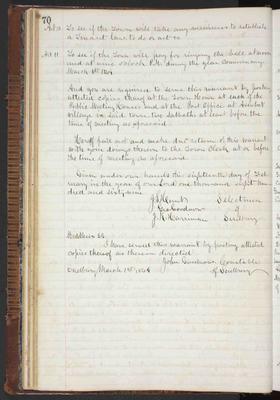 70
Art. 10 To see if the Town will take any measures to establish
a Truant law to do or act
Art 11 To see if the Town will pay for ringing the bell at noon
and at nine oclock P.M. during the year commencing
March 1st
And you are required to serve this warrant by posting
attested copies thereof at the Town House at each of the
Public Meeting Houses and at the Post Office at
Village in said town two Sabbaths at least before the
time of meeting as aforesaid
Hereof fail not and make due return of this warrant
with your doings thereon to the Town Clerk at or before
the time of meeting as aforesaid
Given under our hands this eighteenth day of Feb-
ruary in the year of our Lord one thousand eight hun-
dred and sixty
J. P. Selectmen
of
J. R. Sudbury
Middlesex ss.
I have served this warrant by posting attested
copies thereof as therein directed
John Constable
Sudbury March of Sudbury